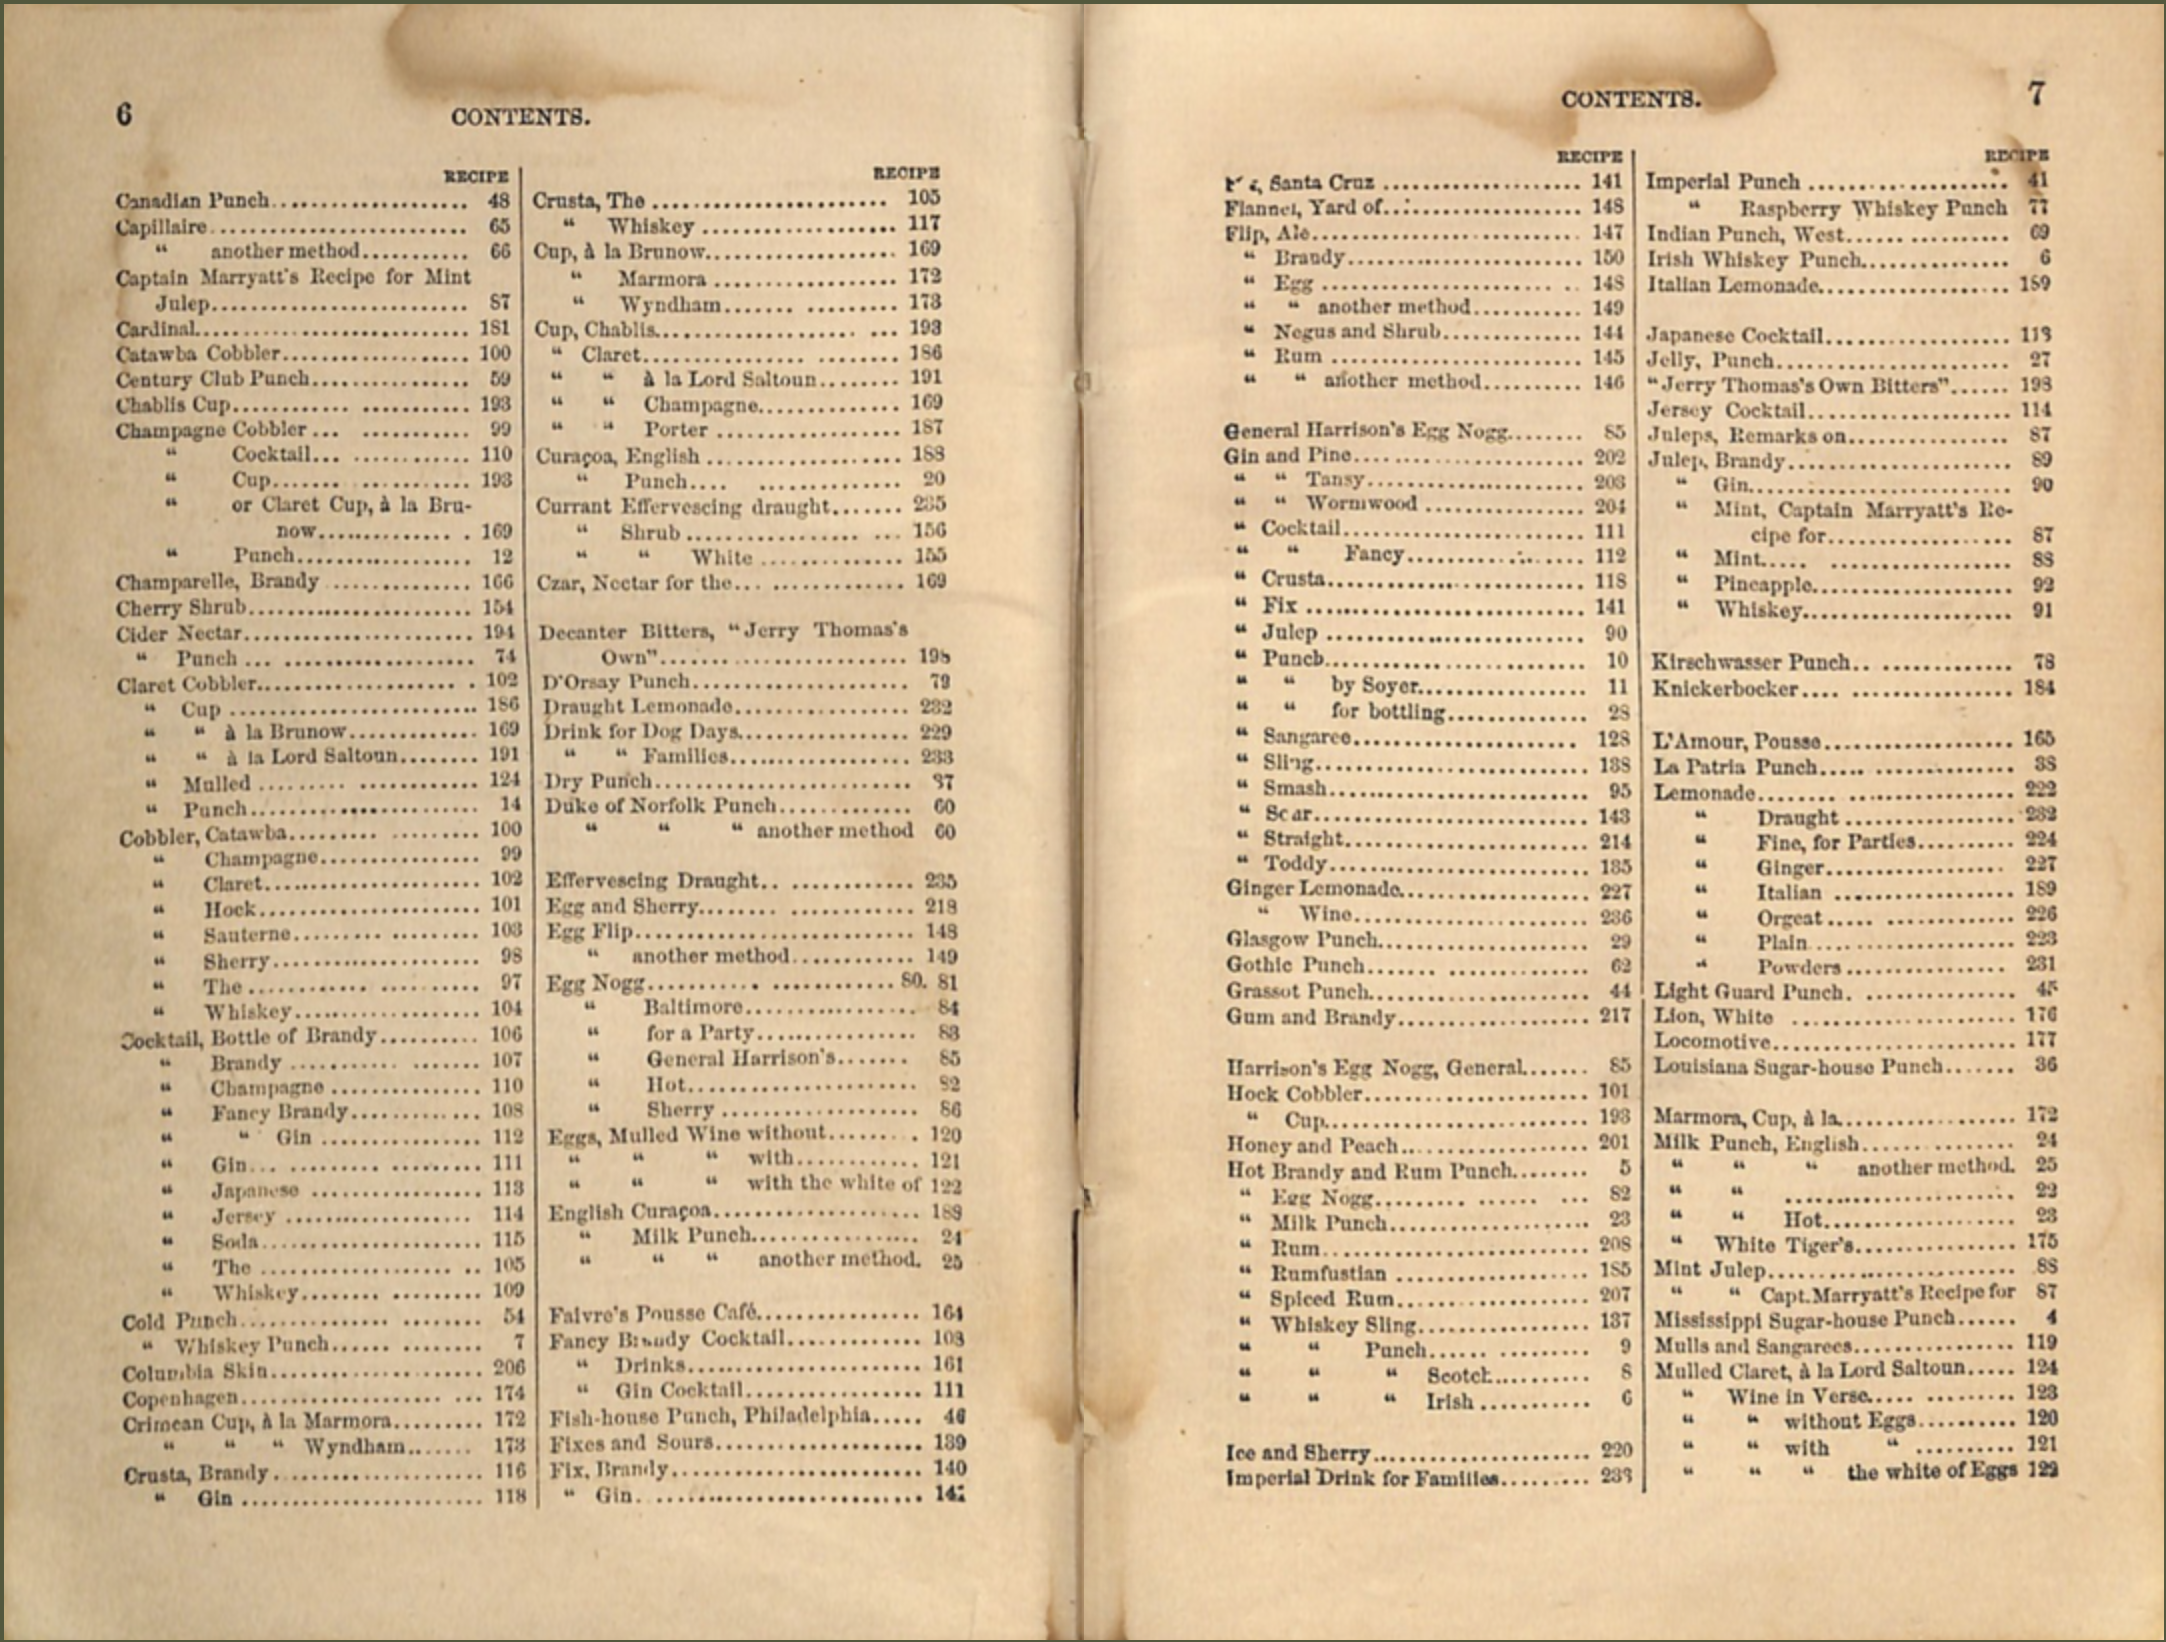 6
CONTENTS.
RECIPE
Canadian Punch.................... 48
Capillaire.......................... 65
“ another method........... 66
Captain Marryatt's Recipe for Mint
Julep.......................... 87
Cardinal........................... 181
Catawba Cobbler................... 100
Century Club Punch................ 59
Chablis Cup........................ 193
Champagne Cobbler................ 99
“ Cocktail................ 110
“ Cup.................... 193
“ or Claret Cup, à la Bru-
now................ 169
“ Punch.................. 12
Champarelle, Brandy .............. 166
Cherry Shrub...................... 154
Cider Nectar....................... 194
“ Punch ....................... 74
Claret Cobbler...................... 102
“ Cup ......................... 186
“ “ à la Brunow............. 169
“ “ à la Lord Saltoun........ 191
“ Mulled ...................... 124
“ Punch....................... 14
Cobbler, Catawba.................. 100
“ Champagne............... 99
“ Claret..................... 102
“ Hock...................... 101
“ Sauterne.................. 103
“ Sherry.................... 98
“ The ...................... 97
“ Whiskey.................. 104
Cocktail, Bottle of Brandy.......... 106
“ Brandy .................. 107
“ Champagne .............. 110
“ Fancy Brandy............ 108
“ “ Gin ............... 112
“ Gin...................... 111
“ Japanese ................ 113
“ Jersey ................... 114
“ Soda..................... 115
“ The ..................... 105
“ Whiskey................. 109
Cold Punch........................ 54
“ Whiskey Punch............... 7
Columbia Skin..................... 206
Copenhagen........................ 174
Crimean Cup, à la Marmora......... 172
“ “ “ Wyndham....... 173
Crusta, Brandy..................... 116
“ Gin ........................ 118
RECIPE
Crusta, The ........................ 105
“ Whiskey .................... 117
Cup, à la Brunow................... 169
“ Marmora .................. 172
“ Wyndham................. 173
Cup, Chablis........................ 193
“ Claret........................ 186
“ “ à la Lord Saltoun........ 191
“ “ Champagne.............. 169
“ “ Porter .................. 187
Curaçoa, English ................... 188
“ Punch.................... 20
Currant Effervescing draught....... 235
“ Shrub ..................... 156
“ “ White .............. 155
Czar, Nectar for the................ 169
Decanter Bitters, “Jerry Thomas's
Own”......................... 198
D'Orsay Punch...................... 79
Draught Lemonade................. 232
Drink for Dog Days................. 229
“ “ Families................. 233
Dry Punch.......................... 37
Duke of Norfolk Punch............. 60
“ “ “ another method 60
Effervescing Draught.............. 235
Egg and Sherry..................... 218
Egg Flip............................ 148
“ another method............ 149
Egg Nogg........................ 80. 81
“ Baltimore................. 84
“ for a Party................ 83
“ General Harrison's....... 85
“ Hot....................... 82
“ Sherry ................... 86
Eggs, Mulled Wine without......... 120
“ “ “ with............ 121
“ “ “ with the white of 122
English Curaçoa.................... 188
“ Milk Punch................ 24
“ “ “ another method. 25
Faivre's Pousse Café............... 164
Fancy Brandy Cocktail............. 108
“ Drinks....................... 161
“ Gin Cocktail................. 111
Fish-house Punch, Philadelphia..... 46
Fixes and Sours..................... 139
Fix, Brandy......................... 140
“ Gin............................
7
CONTENTS.
RECIPE
Santa Cruz .................... 141
Flannel, Yard of.................... 148
Flip, Ale............................ 147
“ Brandy........................ 150
“ Egg .......................... 148
“ “ another method........... 149
“ Negus and Shrub.............. 144
“ Rum ......................... 145
“ “ another method.......... 146
General Harrison's Egg Nogg........ 85
Gin and Pine....................... 202
“ “ Tansy..................... 203
“ “ Wormwood ................ 204
“ Cocktail........................ 111
“ “ Fancy................... 112
“ Crusta.......................... 118
“ Fix ............................ 141
“ Julep .......................... 90
“ Punch.......................... 10
“ “ by Soyer................. 11
“ “ for bottling.............. 28
“ Sangaree....................... 128
“ Sling........................... 138
“ Smash.......................... 95
“ Sour............................ 143
“ Straight........................ 214
“ Toddy.......................... 135
Ginger Lemonade................... 227
“ Wine....................... 236
Glasgow Punch..................... 29
Gothic Punch...................... 62
Grassot Punch...................... 44
Gum and Brandy................... 217
Harrison's Egg Nogg, General....... 85
Hock Cobbler....................... 101
“ Cup.......................... 193
Honey and Peach................... 201
Hot Brandy and Rum Punch........ 5
“ Egg Nogg..................... 82
“ Milk Punch.................... 23
“ Rum.......................... 208
“ Rumfustian ................... 185
“ Spiced Rum................... 207
“ Whiskey Sling................. 137
“ “ Punch................ 9
“ “ “ Scotch.......... 8
“ “ “ Irish ........... 6
Ice and Sherry...................... 220
Imperial Drink for Families......... 233
RECIPE
Imperial Punch .................... 41
“ Raspberry Whiskey Punch 77
Indian Punch, West................ 69
Irish Whiskey Punch............... 6
Italian Lemonade................... 189
Japanese Cocktail.................. 113
Jelly, Punch........................ 27
“Jerry Thomas's Own Bitters”...... 198
Jersey Cocktail..................... 114
Juleps, Remarks on................ 87
Julep, Brandy...................... 89
“ Gin.......................... 90
“ Mint, Captain Marryatt's Re-
cipe for.................. 87
“ Mint........................ 88
“ Pineapple................... 92
“ Whiskey..................... 91
Kirschwasser Punch............... 78
Knickerbocker.................... 184
L'Amour, Pousse................... 165
La Patria Punch................... 38
Lemonade......................... 222
“ Draught ................. 232
“ Fine, for Parties.......... 224
“ Ginger.................. 227
“ Italian .................. 189
“ Orgeat.................. 226
“ Plain.................... 223
“ Powders................ 231
Light Guard Punch................ 45
Lion, White ...................... 176
Locomotive........................ 177
Louisiana Sugar-house Punch....... 36
Marmora, Cup, à la.................. 172
Milk Punch, English............... 24
“ “ “ another method. 25
“ “ ....................... 22
“ “ Hot................... 23
“ White Tiger's................ 175
Mint Julep......................... 88
“ “ Capt. Marryatt's Recipe for 87
Mississippi Sugar-house Punch...... 4
Mulls and Sangarees................ 119
Mulled Claret, à la Lord Saltoun..... 124
“ Wine in Verse............... 123
“ “ without Eggs.......... 120
“ “ with “ .......... 121
“ “ “ the white of Eggs 122